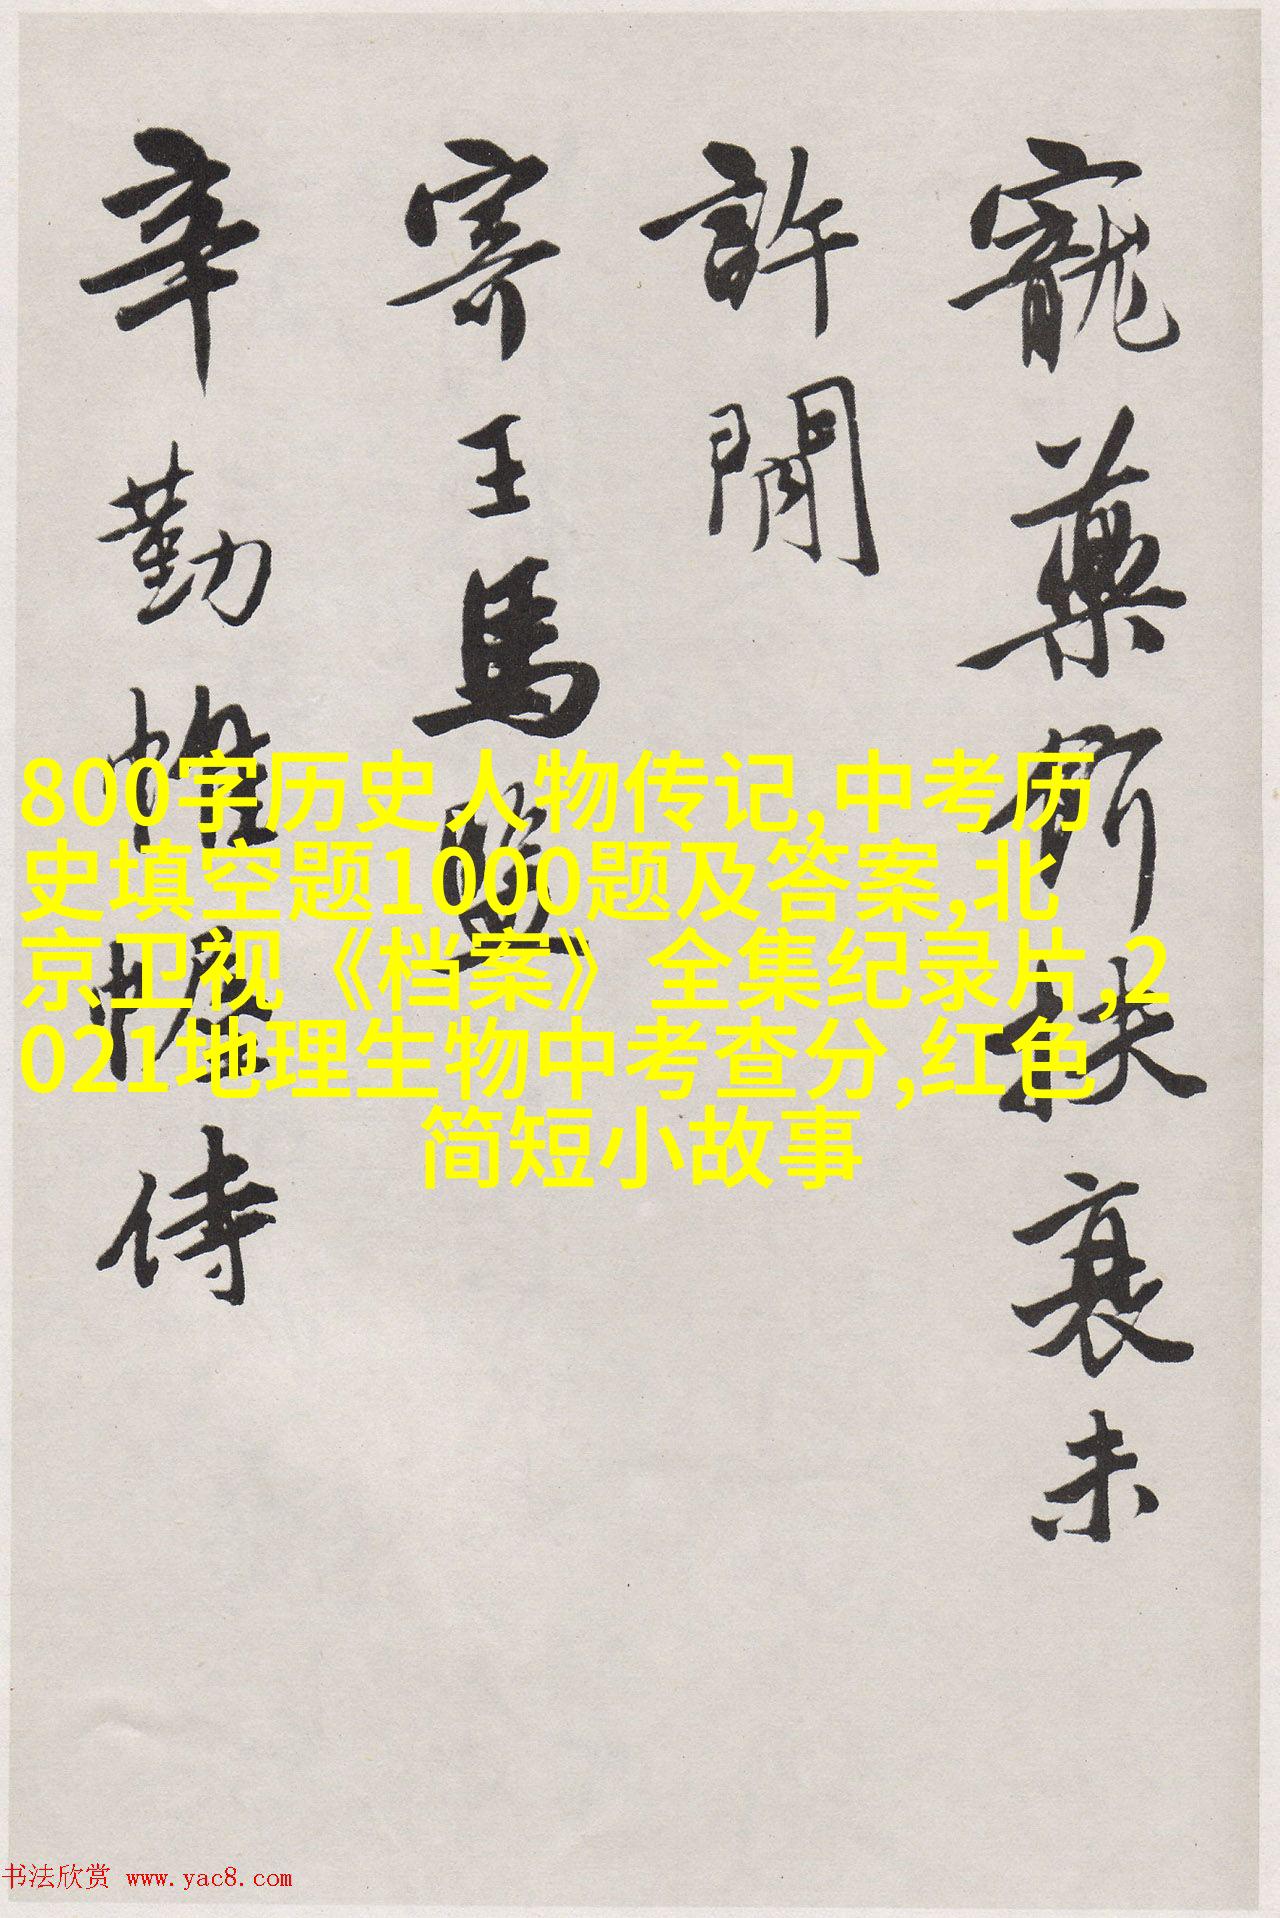 寵藥所扶衰未
許閒
寄王馬監
辛勤帷幄侍
800字历史人物传记,中考历
史填空题1000题及答案,北
京卫视《档案》全集纪录片,2
021地理生物中考查分,红色
简短小故事
书法欣赏 www.yac8.com